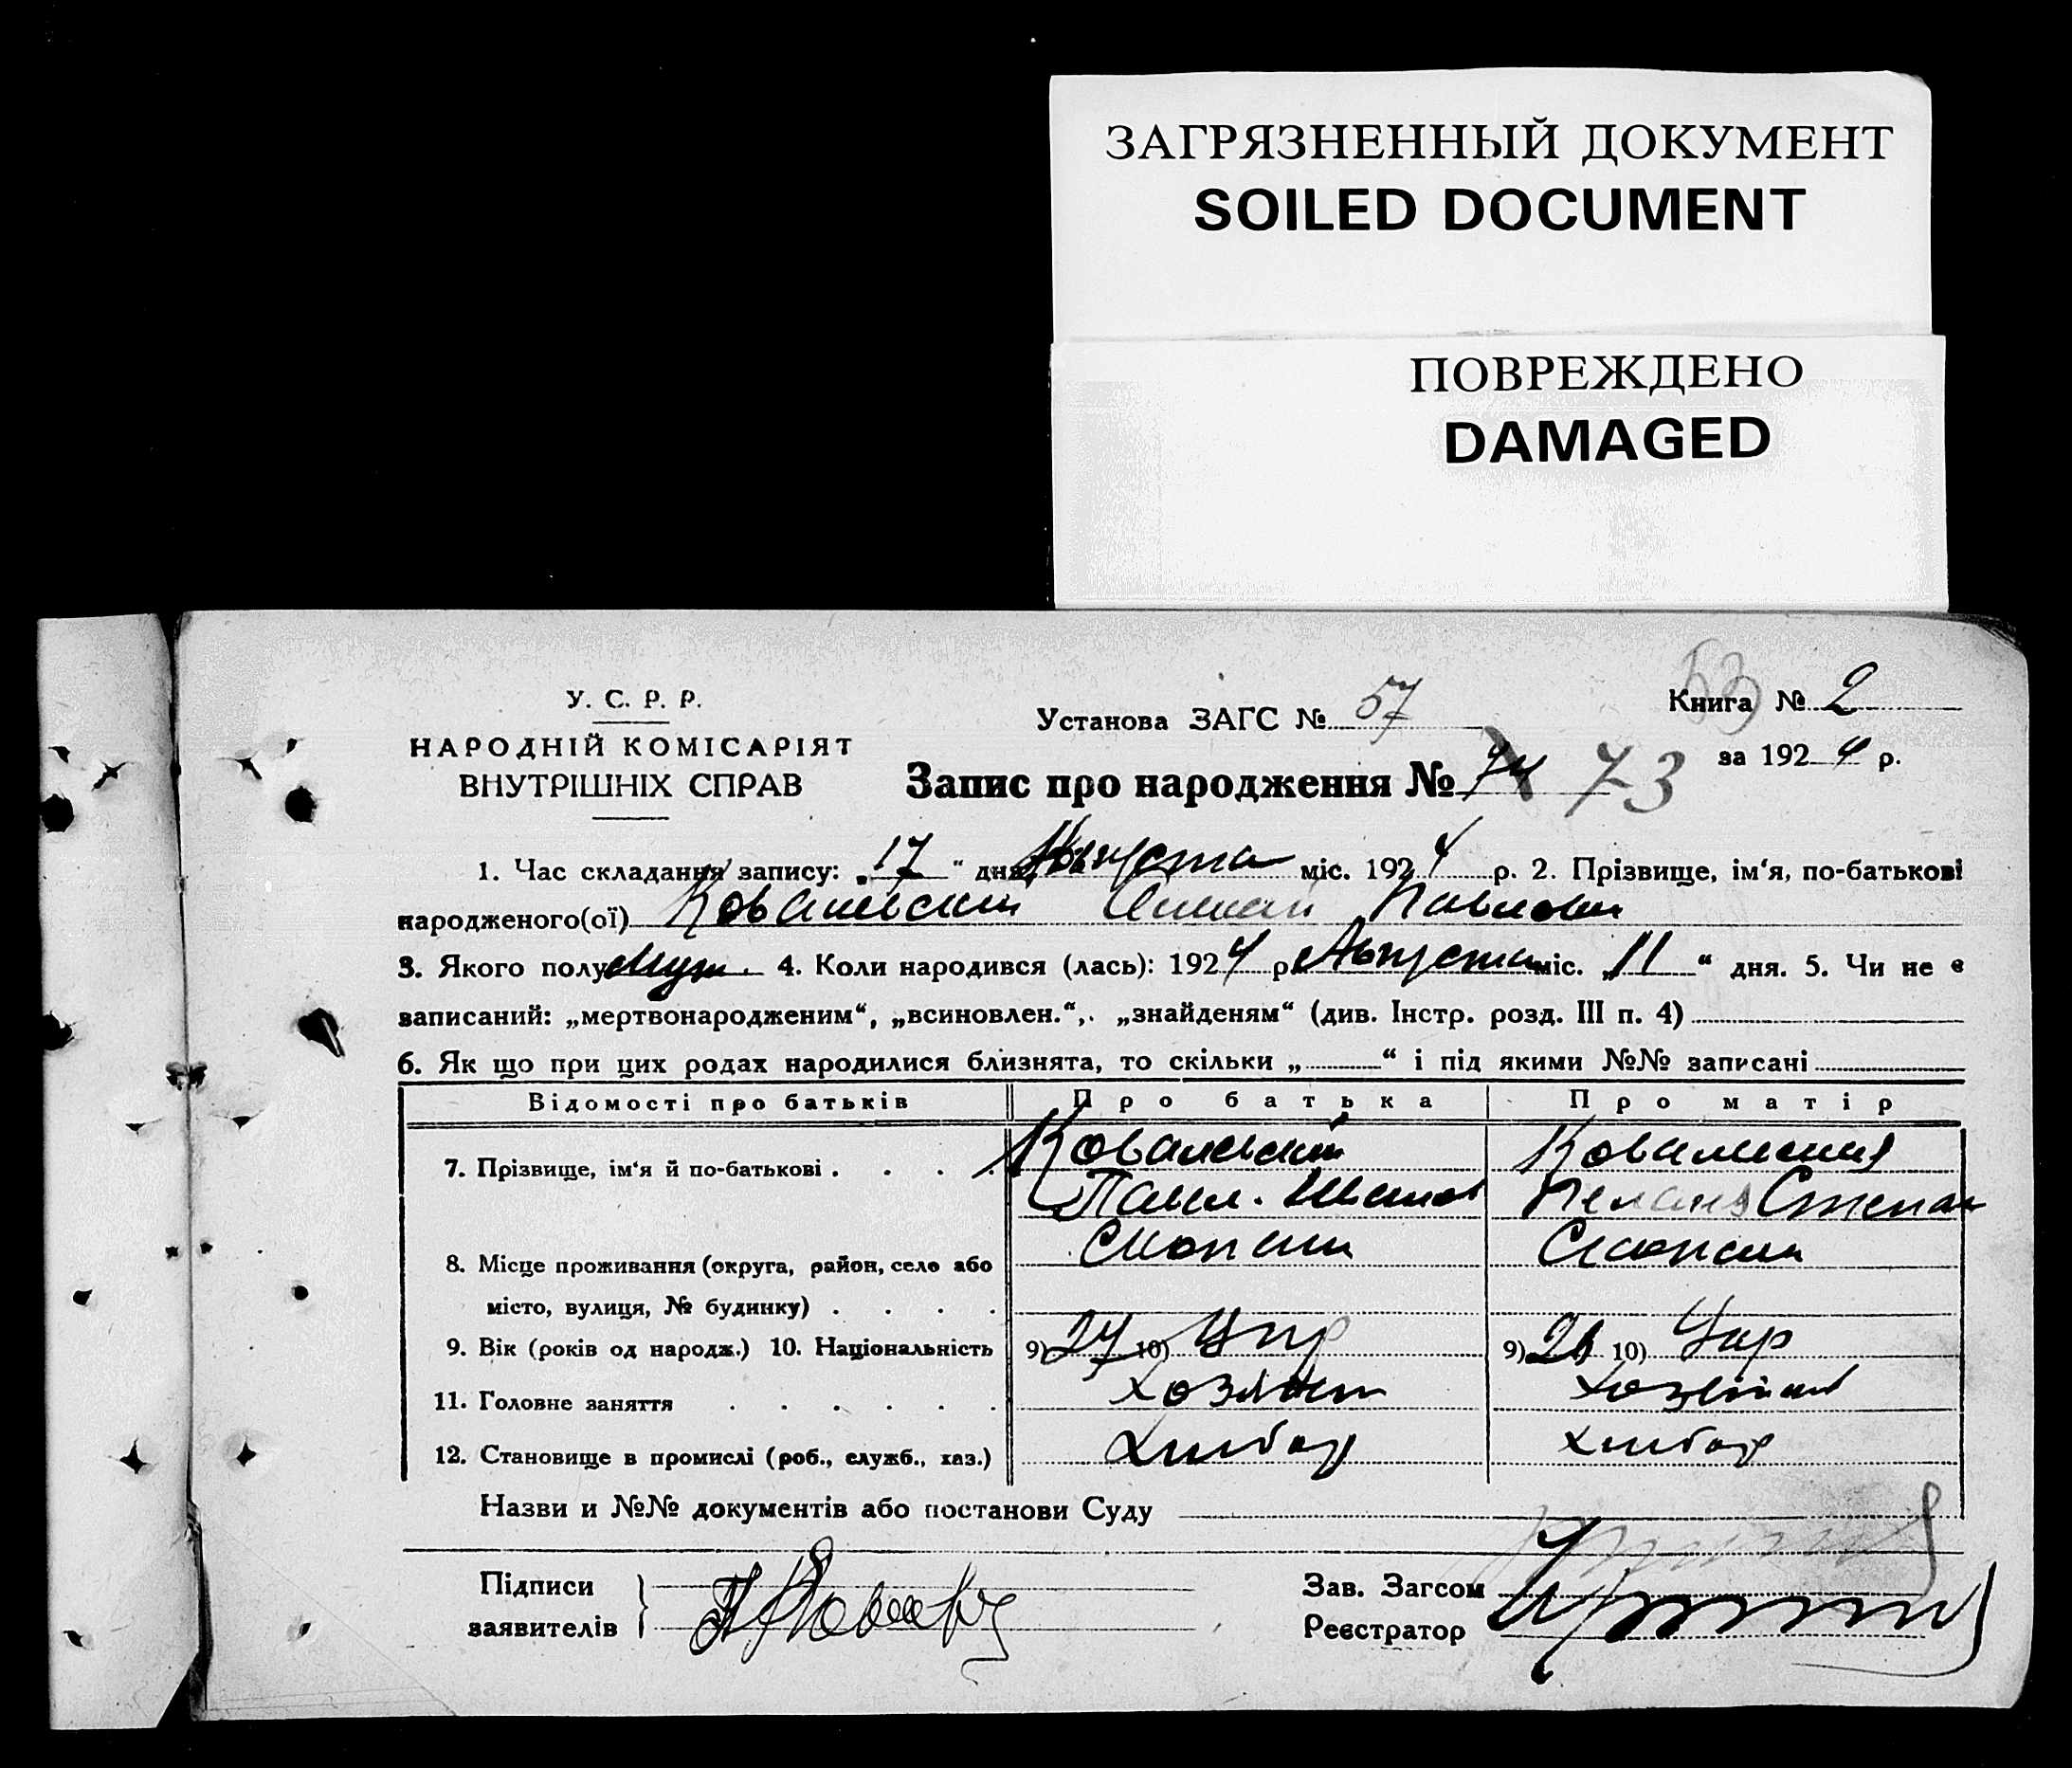 ЗАГРЯЗНЕННЫЙ ДОКУМЕНТ
SOILED DOCUMENT
ПОВРЕЖДЕНО
DAMAGED
53
У. С. Р. Р.
НАРОДНІЙ КОМІСАРІЯТ
ВНУТРІШНІХ СПРАВ
Установа ЗАГС № 57
Книга № 2
за 1924 р.
Запис про народження № 74 73
1. Час складання запису: „17“ дня Августа міс. 1924 р. 2. Прізвище, ім‘я, по-батькові
народженого(ої) Ковалевский Павлович
3. Якого полу муж. 4. Коли народився (лась): 1924 р. Августа міс. „11“ дня. 5. Чи не є
записаний: „мертвонародженим“, „всиновлен.“, „знайденям“ (див. Інстр. розд. III п. 4)
6. Як що при цих родах народилися близнята, то скільки „ “ і під якими №№ записані
Відомості про батьків Про батька Про матір
7. Прізвище, ім‘я й по-батькові . . . . Ковалевский Ковалевская
Павл. Иванов Пелагея Степан
8. Місце проживання (округа, район, село або
місто, вулиця, № будинку) . . . .
9. Вік (років од народж.) 10. Національність 9) 27 10) Укр 9) 26 10) Укр
11. Головне заняття . . . . . . Хозяин
12. Становище в промислі (роб., служб., хаз.) Хлебор Хлебор
Назви и №№ документів або постанови Суду
Підписи
заявителів
Зав. Загсом
Реєстратор